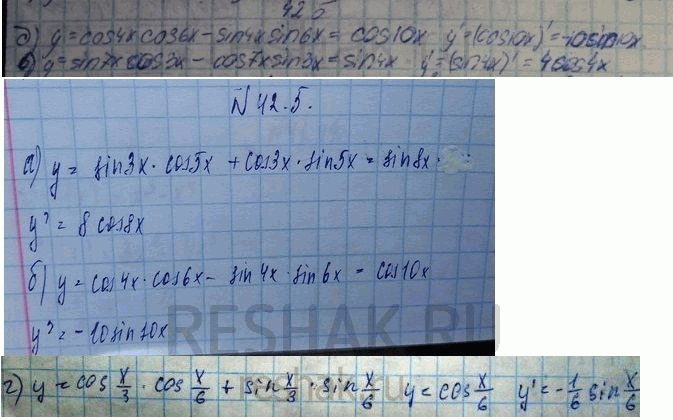 42 б
д) y = cos4x cos6x - sin4x sin6x = cos10x y' = (cos10x)' = -10sin10x
в) y = sin7x cos3x - cos7x sin3x = sin4x y' = (sin4x)' = 4cos4x
N 42.5.
а) y = sin3x · cos5x + cos3x · sin5x = sin8x ·
y' = 8 cos8x
б) y = cos4x · cos6x - sin4x · sin6x = cos10x
y' = -10sin10x
RESHAK.RU
г) y = cos x/3 · cos x/6 + sin x/3 · sin x/6 y = cos x/6 y' = -1/6 sin x/6